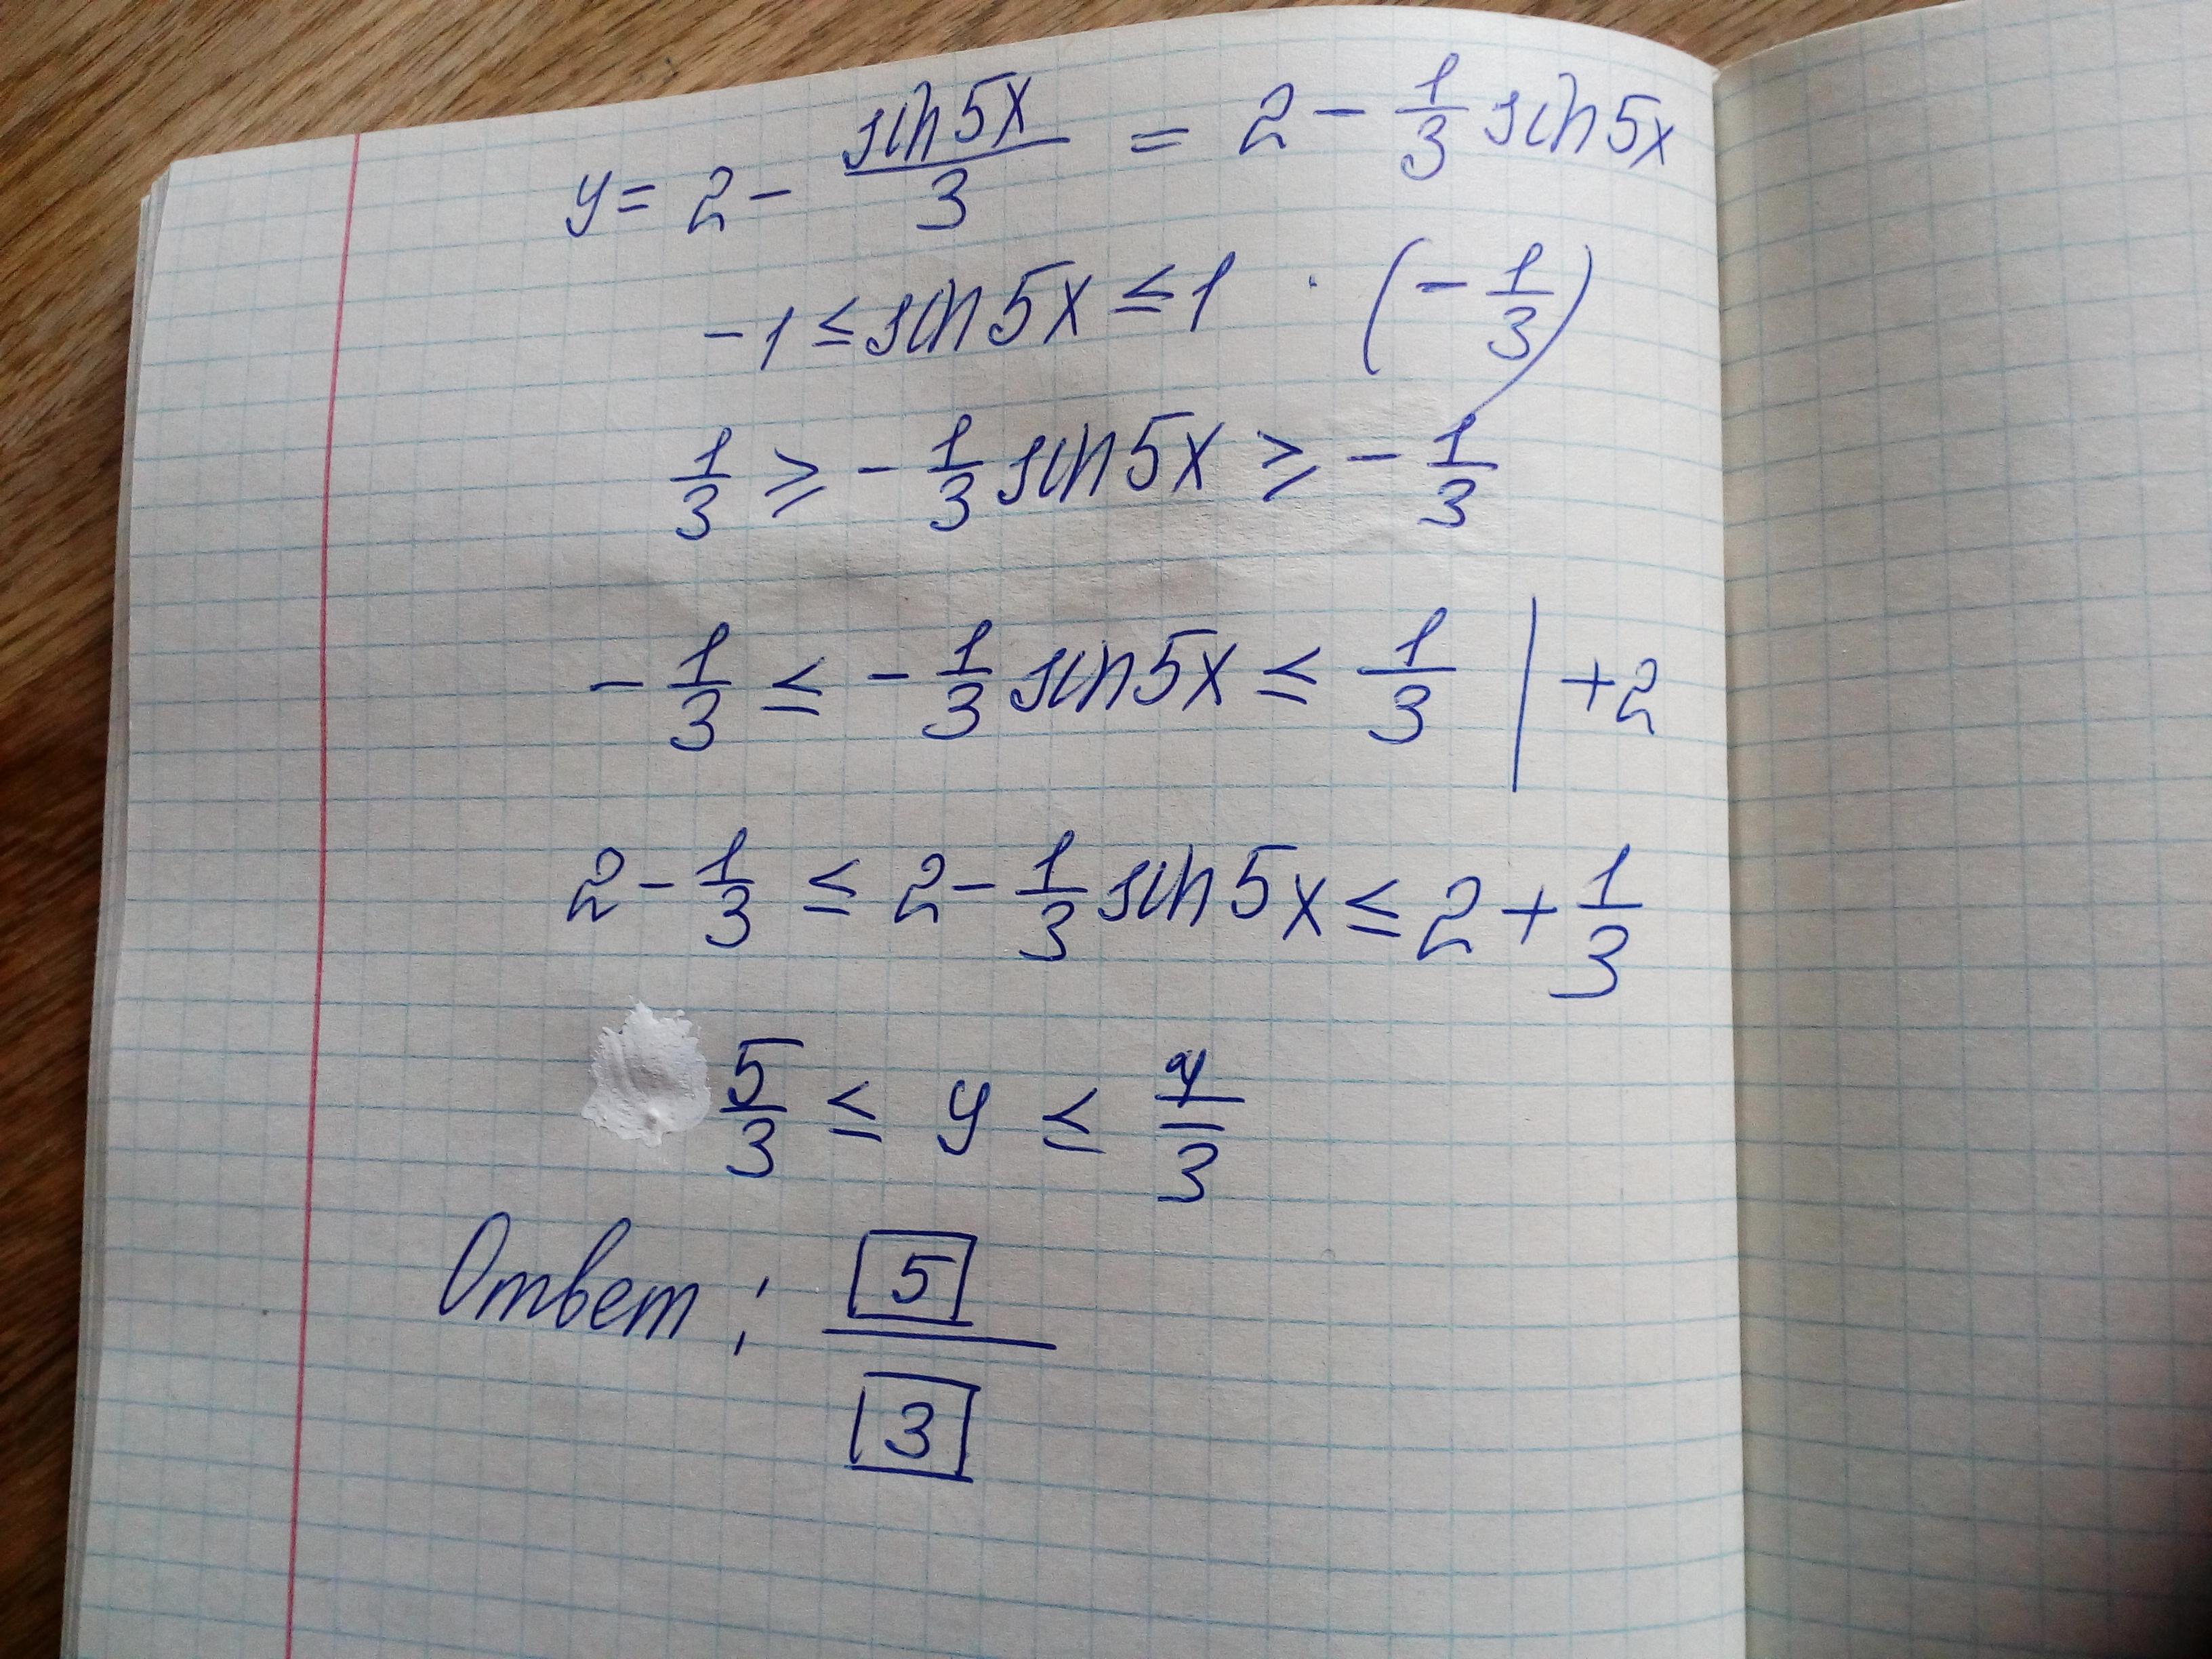 y = 2 - sin5x/3 = 2 - 1/3 sin5x
-1 ≤ sin5x ≤ 1 · (-1/3)
1/3 ≥ -1/3 sin5x ≥ -1/3
-1/3 ≤ -1/3 sin5x ≤ 1/3 | +2
2 - 1/3 ≤ 2 - 1/3 sin5x ≤ 2 + 1/3
5/3 ≤ y ≤ 7/3
Ответ: 5/3